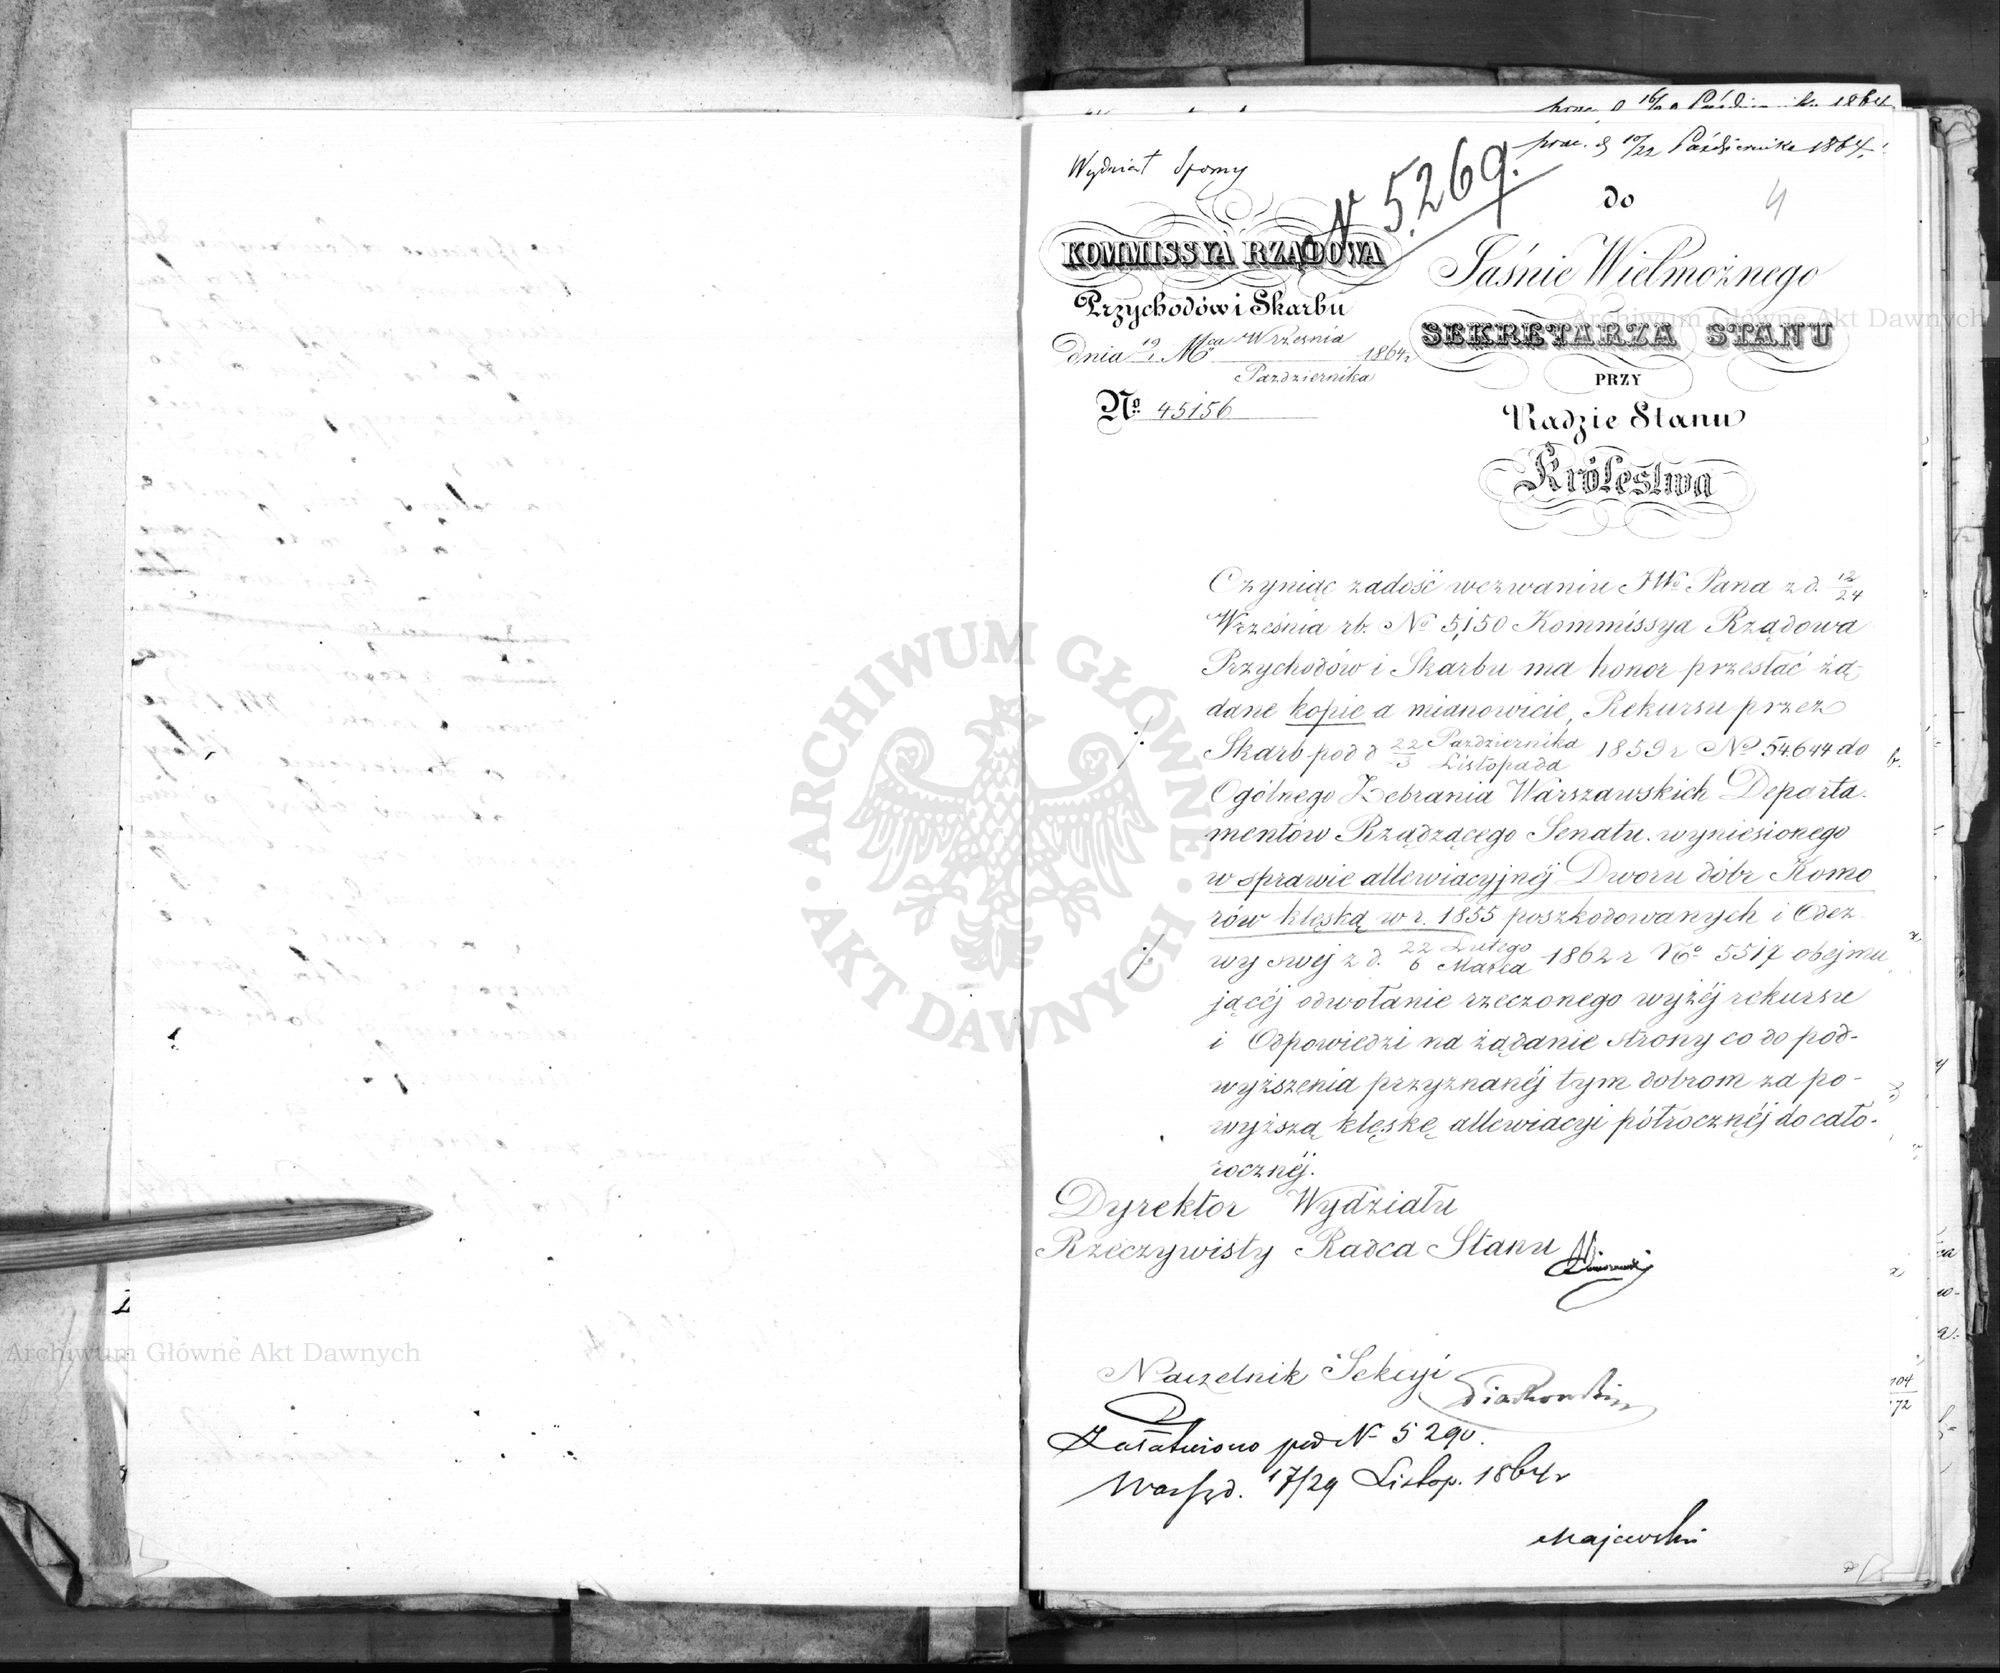 prez. d 10/22 Października 1864.
Wydział Sporny
N 5269.
4
KOMMISSYA RZĄDOWA
Przychodów i Skarbu
dnia 19/1 Mca Września Października 1864 r
No 45156
do
Jaśnie Wielmożnego
SEKRETARZA STANU
PRZY
Radzie Stanu
Królestwa
Czyniąc zadość wezwaniu JWo Pana z d. 12/24
Września rb. No 5,150 Kommissya Rządowa
Przychodów i Skarbu ma honor przesłać żą-
dane kopie a mianowicie, Rekursu przez
Skarb pod d 22/3 Października Listopada 1859 r No 54.644 do
Ogólnego Zebrania Warszawskich Departa-
mentów Rządzącego Senatu wyniesionego
w sprawie allewiacyjnéj Dworu dóbr Komo
rów klęską w r. 1855 poszkodowanych i Odez-
wy swéj z d. 22/6 Lutego Marca 1862 r No 5517 obejmu
jącéj odwołanie rzeczonego wyżéj rekursu
i Odpowiedzi na żądanie strony co do pod-
wyższenia przyznanéj tym dobrom za po-
wyższą klęskę allewiacyi półrocznéj do cało-
rocznéj.
Dyrektor Wydziału
Rzeczywisty Radca Stanu
Naczelnik Sekcyi
Załatwiono pod N 5290.
Warsz d. 17/29 Listop. 1864 r
Majewski
Archiwum Główne Akt Dawnych
Archiwum Główne Akt Dawnych
ARCHIWUM GŁÓWNE AKT DAWNYCH